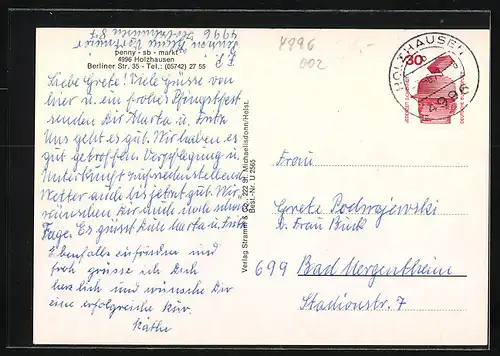 4996
penny - sb - markt
4996 Holzhausen
Berliner Str. 35 - Tel.: (05742) 27 55
Liebe Grete! Viele Grüsse von
hier u. ein frohes Pfingstfest
senden Dir Marta u. Fritz
Uns geht es gut. Wir haben es
gut getroffen. Verpflegung u.
Unterkunft zufriedenstellend
Wetter auch bis jetzt gut. Wir
wünschen Dir auch noch schöne
Tage. Es grüsst Euch Marta u. Fritz
Ebenfalls zufrieden und
froh grüsse ich Dich
herzlich und wünsche Dir
eine erfolgreiche Kur.
Käthe
Verlag Stramm & Co., 222 St. Michaelisdonn/Holst.
Best.-Nr. U 2565
4996
002
HOLZHAUSEN
4996
30
Frau
Grete Podwojewski
b. Frau Bink
699 Bad Mergentheim
Stadionstr. 7